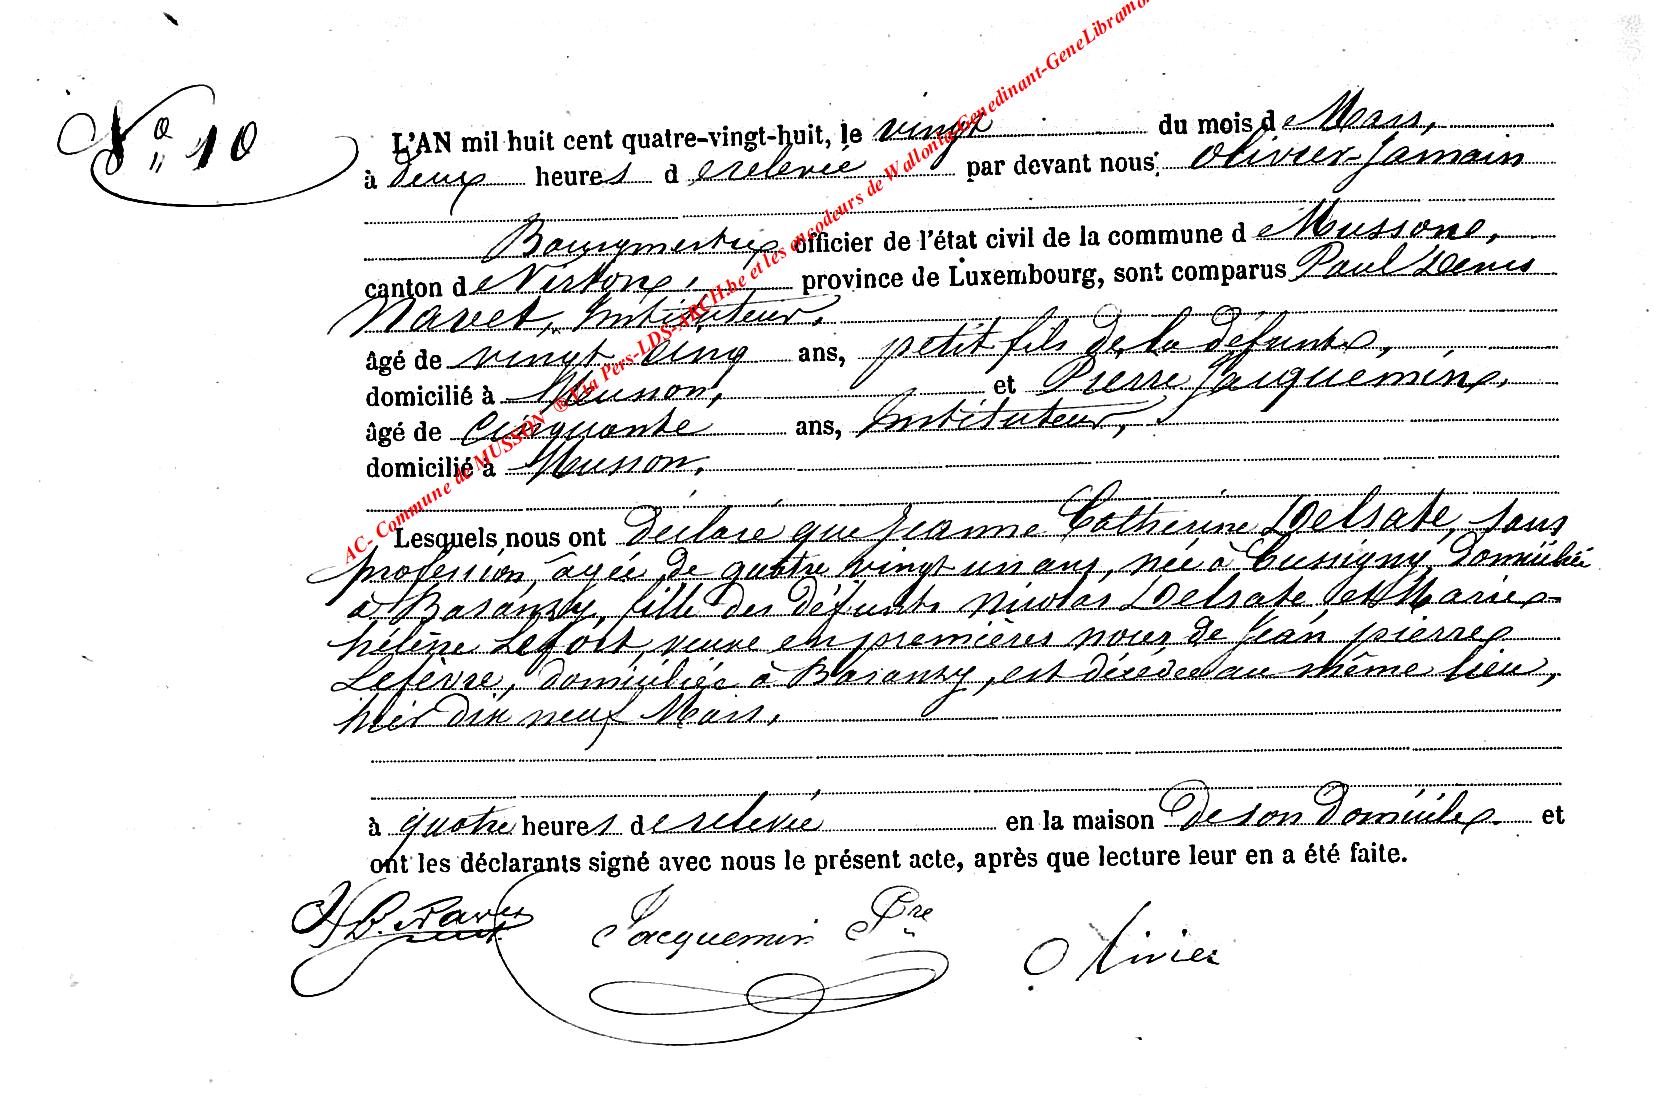 N° 10
L'AN mil huit cent quatre-vingt-huit, le vingt du mois de Mars,
à deux heures de relevée par devant nous: Olivier Jamain
Bourgmestre, officier de l'état civil de la commune de Musson,
canton de Virton, province de Luxembourg, sont comparus Paul Denis
Navet, Instituteur,
âgé de vingt cinq ans, petit fils de la défunte,
domicilié à Musson, et Pierre Jacquemin,
âgé de Cinquante ans, Instituteur,
domicilié à Musson,
Lesquels nous ont déclaré que Jeanne Catherine Delsate, sans
profession, âgée de quatre vingt un ans, née à Cussigny, domiciliée
à Baranzy, fille des défunts Nicolas Delsate et Marie
hélène Lefort, veuve en premières noces de Jean pierre
Lefèvre, domiciliée à Baranzy, est décédée au même lieu,
hier dix neuf Mars,
à quatre heures de relevée en la maison de son domicile et
ont les déclarants signé avec nous le présent acte, après que lecture leur en a été faite.
Navet Jacquemin Pre Olivier
AC- Commune de MUSSON ® Via Pers-LDS-ARCH.be et les encodeurs de Wallonia-Genedinant-GeneLibramo